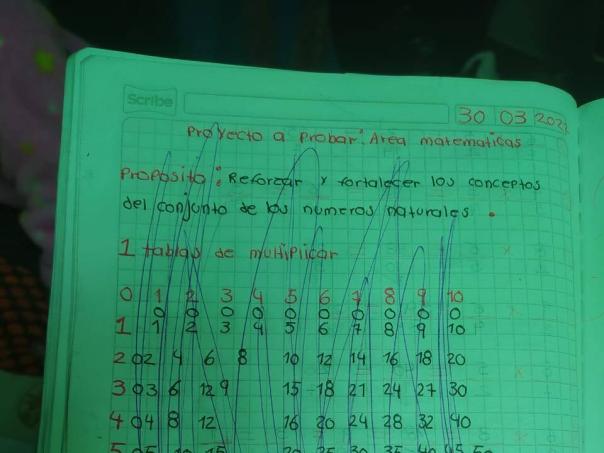 Scribe
30 03 202
Proyecto a probar: Area matematicas
Proposito: Reforzar y fortalecer los conceptos
del conjunto de los numeros naturales.
1 tablas de multiplicar
0 1 2 3 4 5 6 7 8 9 10
0 0 0 0 0 0 0 0 0 0
1 1 2 3 4 5 6 7 8 9 10
2 0 2 4 6 8 10 12 14 16 18 20
3 0 3 6 12 9 15 18 21 24 27 30
4 0 4 8 12 16 20 24 28 32 40